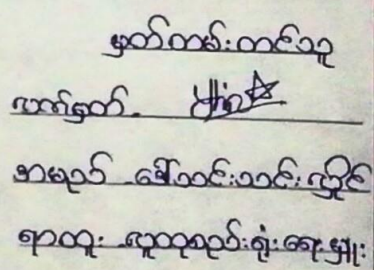 မှတ်တမ်းတင်သူ
လက်မှတ်
အမည် ဒေါ်သင်းသင်းလှိုင်
ရာထူး လူထုစည်းရုံးရေးမှူး